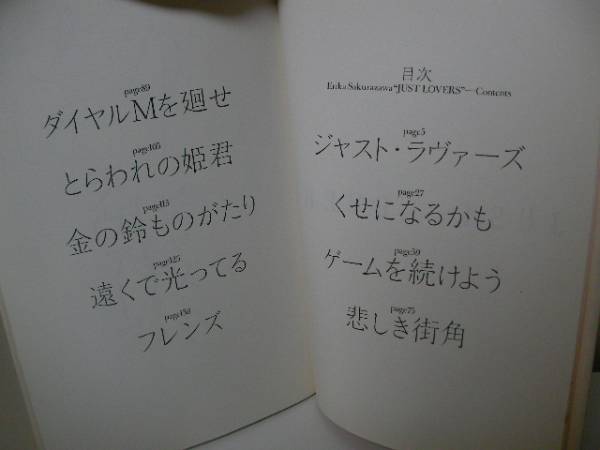 目次
Erika Sakurazawa "JUST LOVERS"—Contents
page5
ジャスト・ラヴァーズ
page27
くせになるかも
page59
ゲームを続けよう
page75
悲しき街角
page89
ダイヤルMを廻せ
page105
とらわれの姫君
page115
金の鈴ものがたり
page125
遠くで光ってる
フレンズ